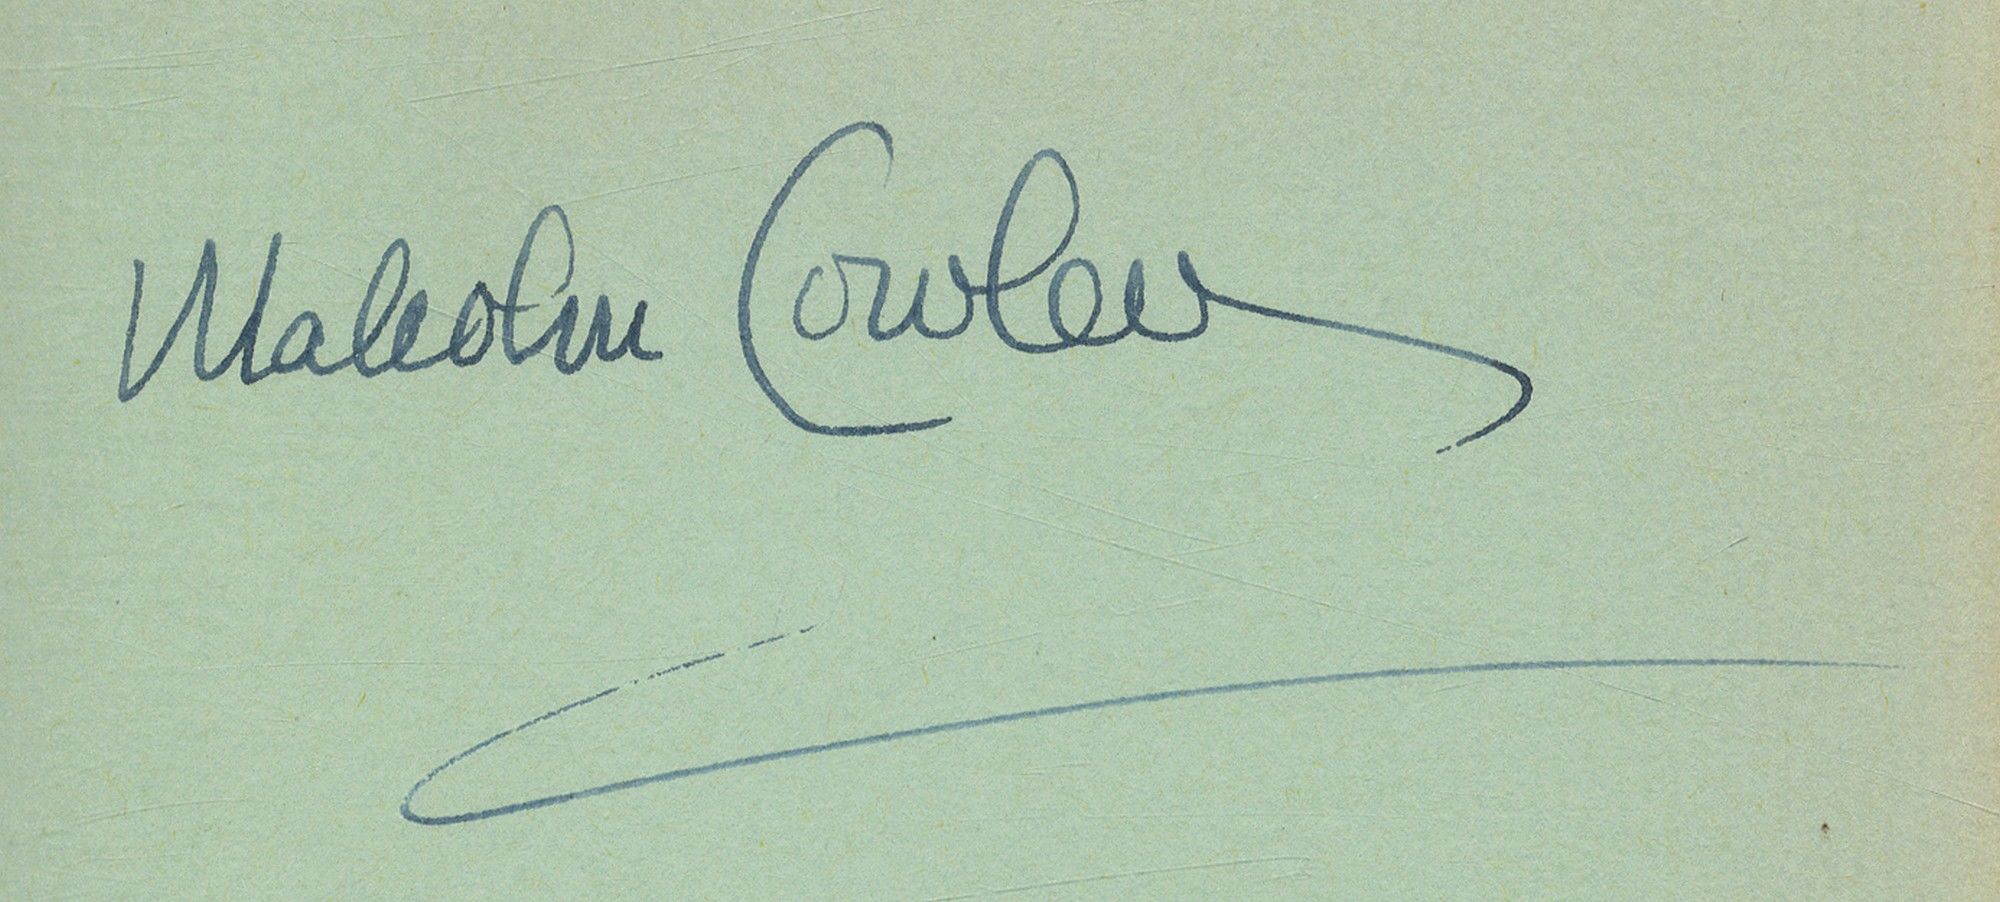 Malcolm Cowley